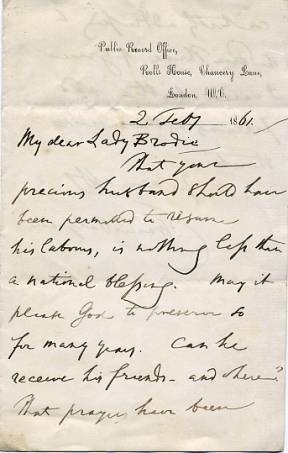 Public Record Office,
Rolls House, Chancery Lane,
London, W.C.
2 Feby 1861
My dear Lady Brodie
That your
precious husband should have
been permitted to resume
his labours, is nothing less than
a national blessing. May it
please God to preserve so
for many years. Can he
receive his friends - and where?
That prayers have been